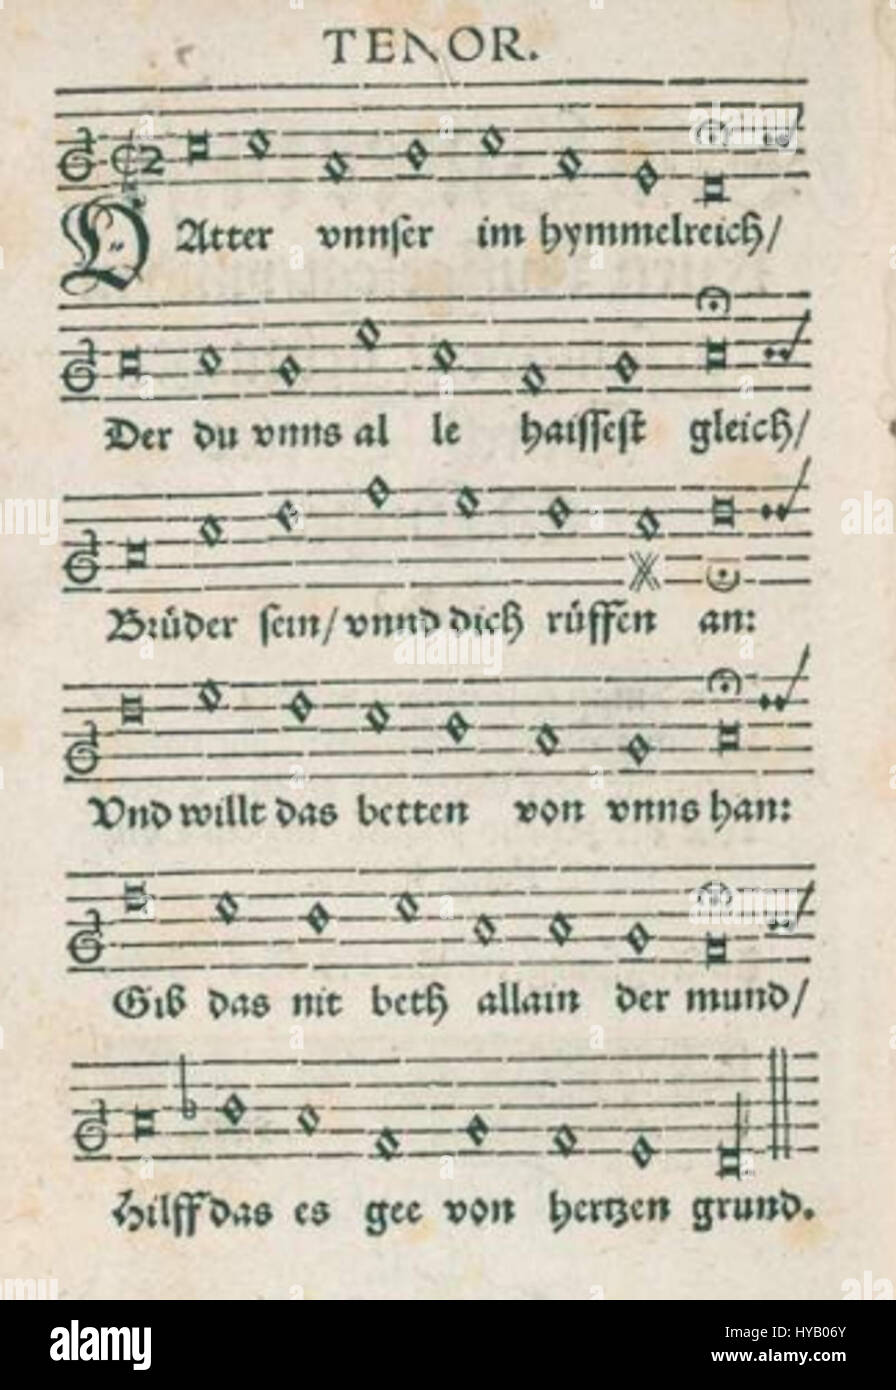 TENOR.
VAtter vnnser im hymmelreich/
Der du vnns al le haissest gleich/
Brüder sein/ vnnd dich rüffen an:
Vnd willt das betten von vnns han:
Gib das nit beth allain der mund/
Hilff das es gee von hertzen grund.
alamy
Image ID: HYB06Y
www.alamy.com